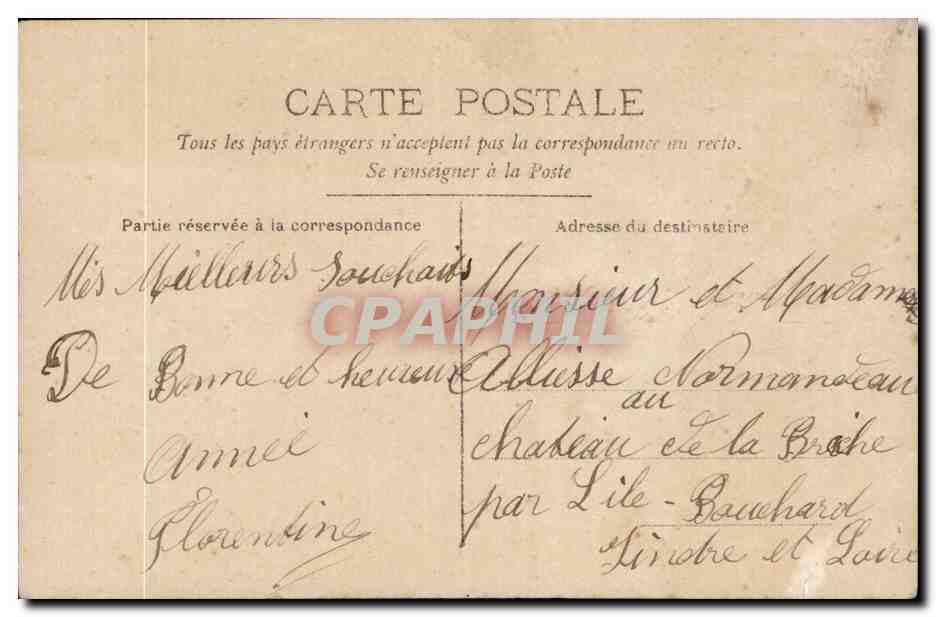 CARTE POSTALE
Tous les pays étrangers n'acceptent pas la correspondance au recto.
Se renseigner à la Poste
Partie réservée à la correspondance
Mes Meilleurs Souchaits
De Bonne et heureuse
Année
Florentine
Adresse du destinataire
Monsieur et Madame
Normandeau
au
chateau de la Briche
par L'ile-Bouchard
Indre et Loire
CPAPHIL